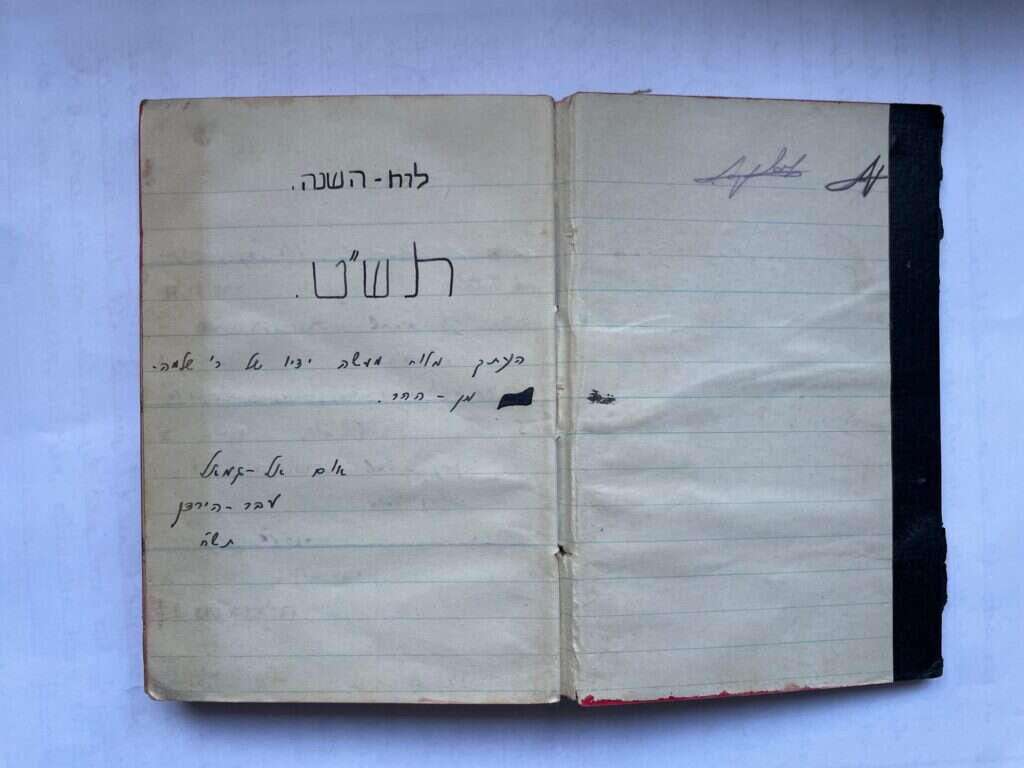 לוח - השנה.
תש"ט.
העתק מלוח מעשה ידיו של ר' שלמה.
מן - ההר.
אום אל - ג'מאל
עבר - הירדן
תש"ח